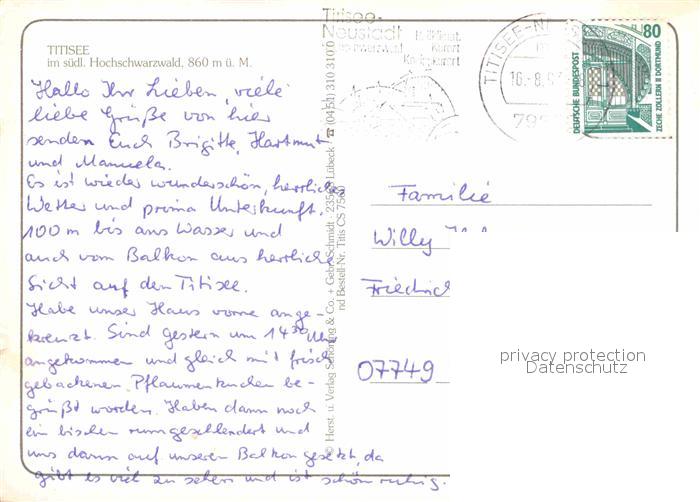 TITISEE
im südl. Hochschwarzwald, 860 m ü. M.
Hallo Ihr Lieben, viele
liebe Grüße von hier
senden Euch Brigitte, Hartmut
und Manuela.
Es ist wieder wunderschön, herrliches
Wetter und prima Unterkunft.
100 m bis ans Wasser und
auch vom Balkon aus herrliche
Sicht auf den Titisee.
Habe unser Haus vorne ange-
kreuzt. Sind gestern um 14³⁰ Uhr
angekommen und gleich mit frisch
gebackenen Pflaumenkuchen be-
grüßt worden. Haben dann noch
ein bischen rumgeschlendert und
uns dann auf unseren Balkon gesetzt, da
gibt es viel zu sehen und ist schön ruhig.
© Herst. u. Verlag Schöning & Co. + Gebr. Schmidt · Lübeck · ☎ (04 51) 310 310
nd Bestell-Nr. Titis CS
Titisee-
Neustadt
Kurort
TITISEE-NE
16.-8.
DEUTSCHE BUNDESPOST
80
ZECHE ZOLLERN II DORTMUND
Familie
Willy
Friedrich
07749
privacy protection
Datenschutz